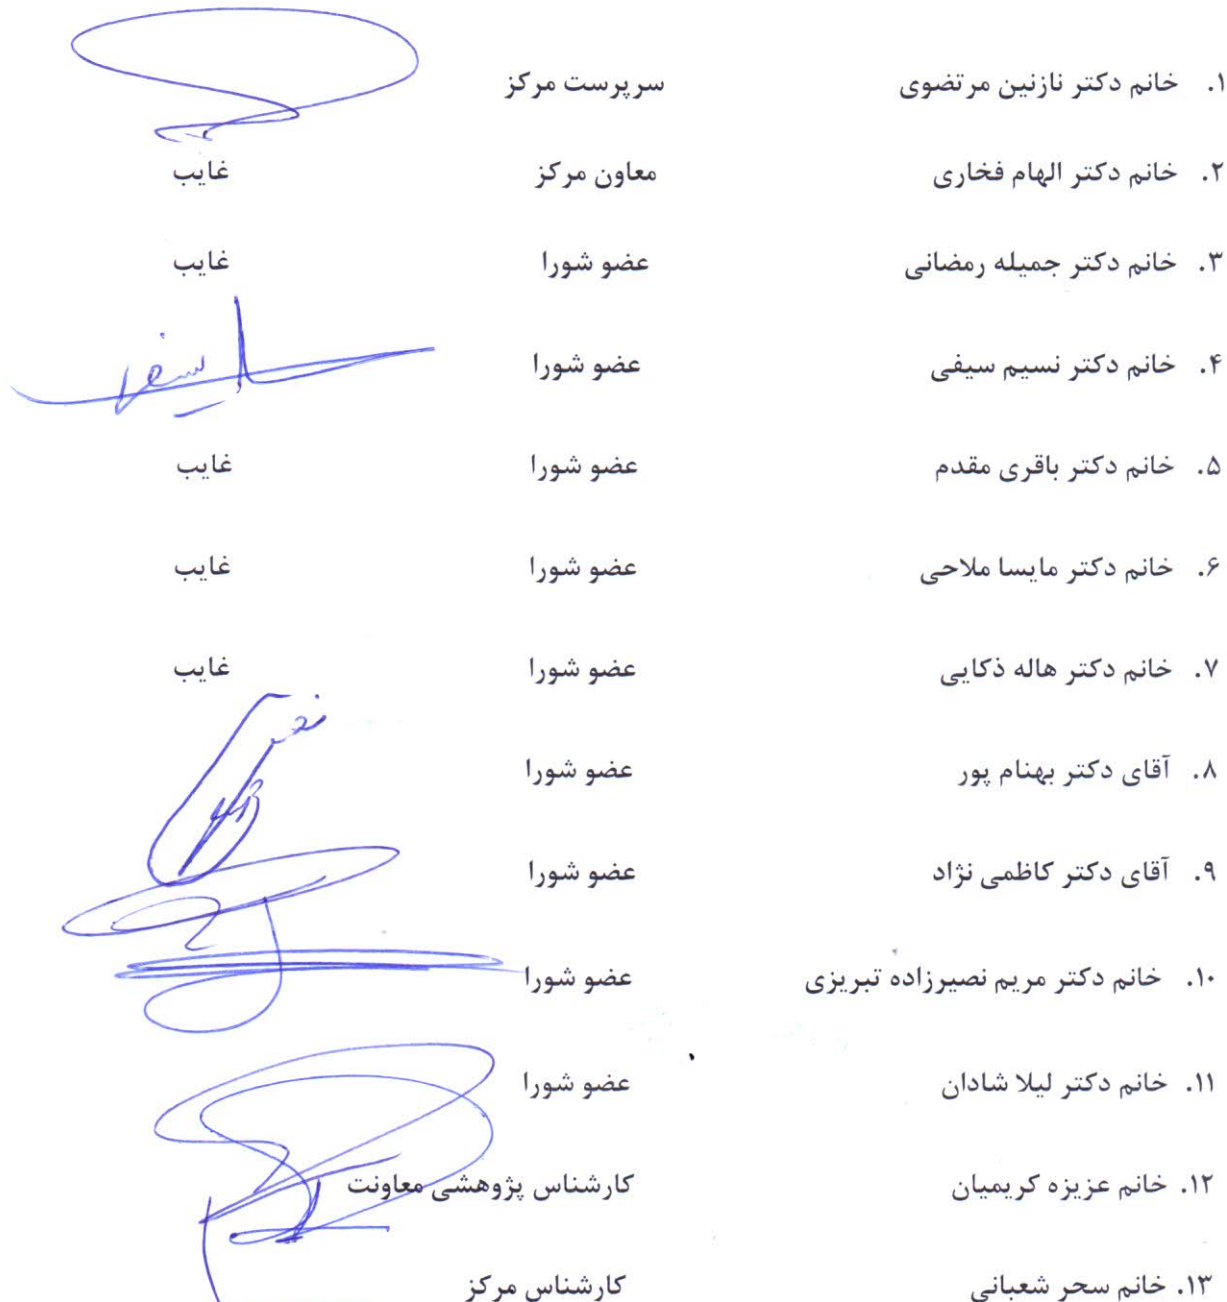 ۱. خانم دکتر نازنین مرتضوی سرپرست مرکز
۲. خانم دکتر الهام فخاری معاون مرکز غایب
۳. خانم دکتر جمیله رمضانی عضو شورا غایب
۴. خانم دکتر نسیم سیفی عضو شورا
۵. خانم دکتر باقری مقدم عضو شورا غایب
۶. خانم دکتر مایسا ملاحی عضو شورا غایب
۷. خانم دکتر هاله ذکایی عضو شورا غایب
۸. آقای دکتر بهنام پور عضو شورا
۹. آقای دکتر کاظمی نژاد عضو شورا
۱۰. خانم دکتر مریم نصیرزاده تبریزی عضو شورا
۱۱. خانم دکتر لیلا شادان عضو شورا
۱۲. خانم عزیزه کریمیان کارشناس پژوهشی معاونت
۱۳. خانم سحر شعبانی کارشناس مرکز